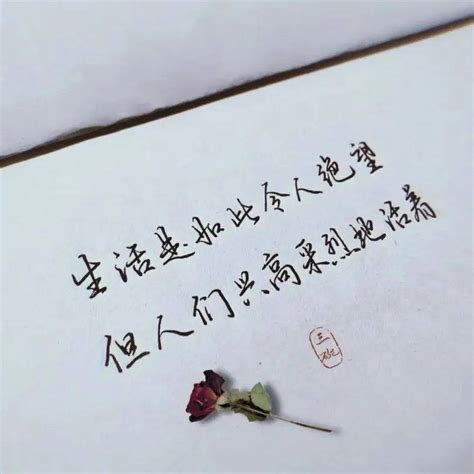 生活是如此令人绝望
但人们兴高采烈地活着
三